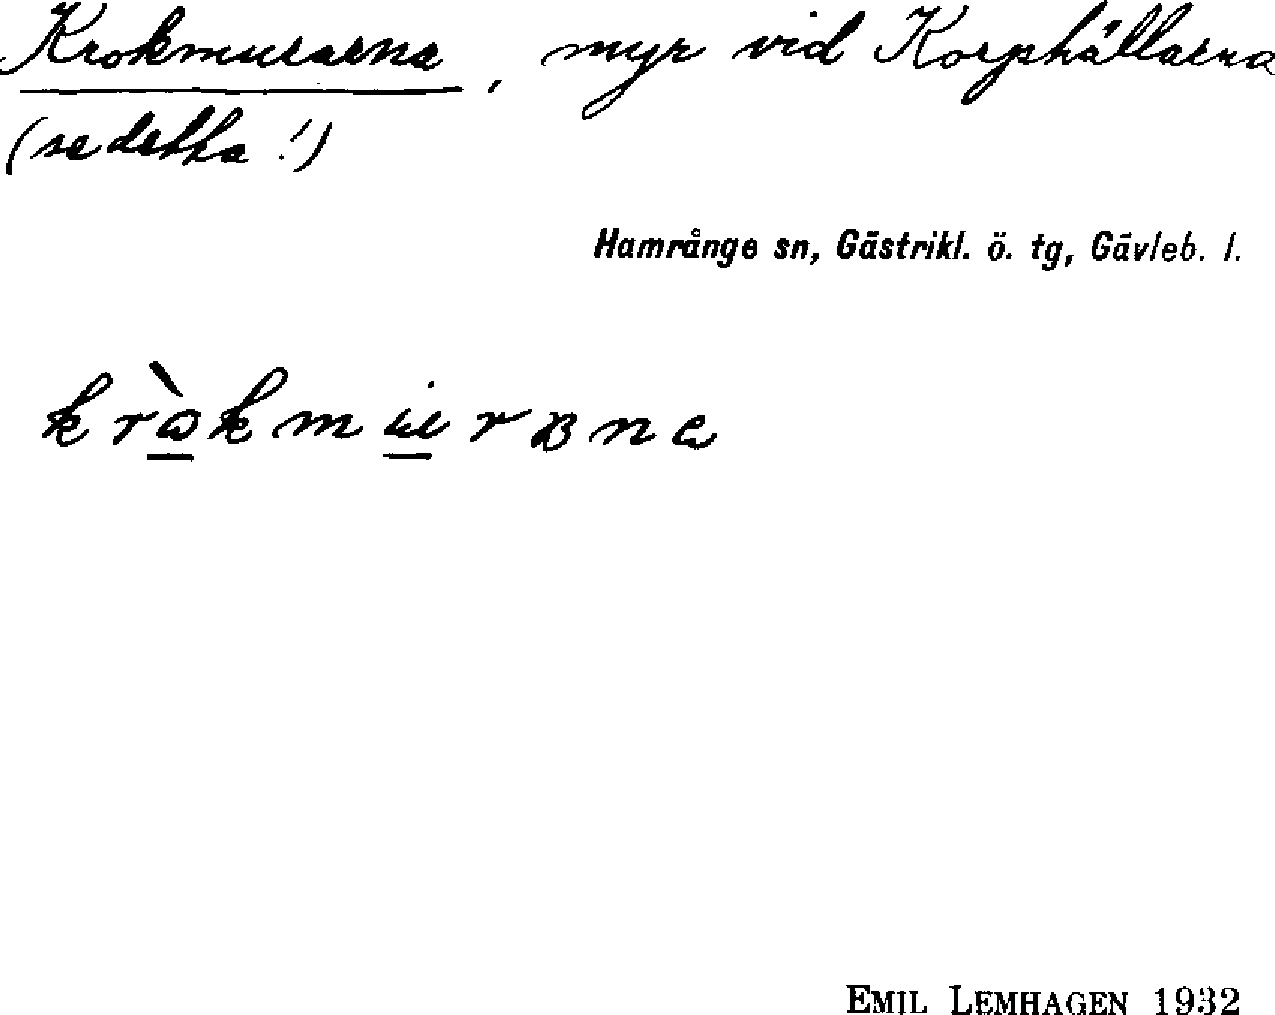 Krokmurarna, myr vid Korphällarna
(se detta!)
Hamrånge sn, Gästrikl. ö. tg, Gävleb. l.
EMIL LEMHAGEN 1932